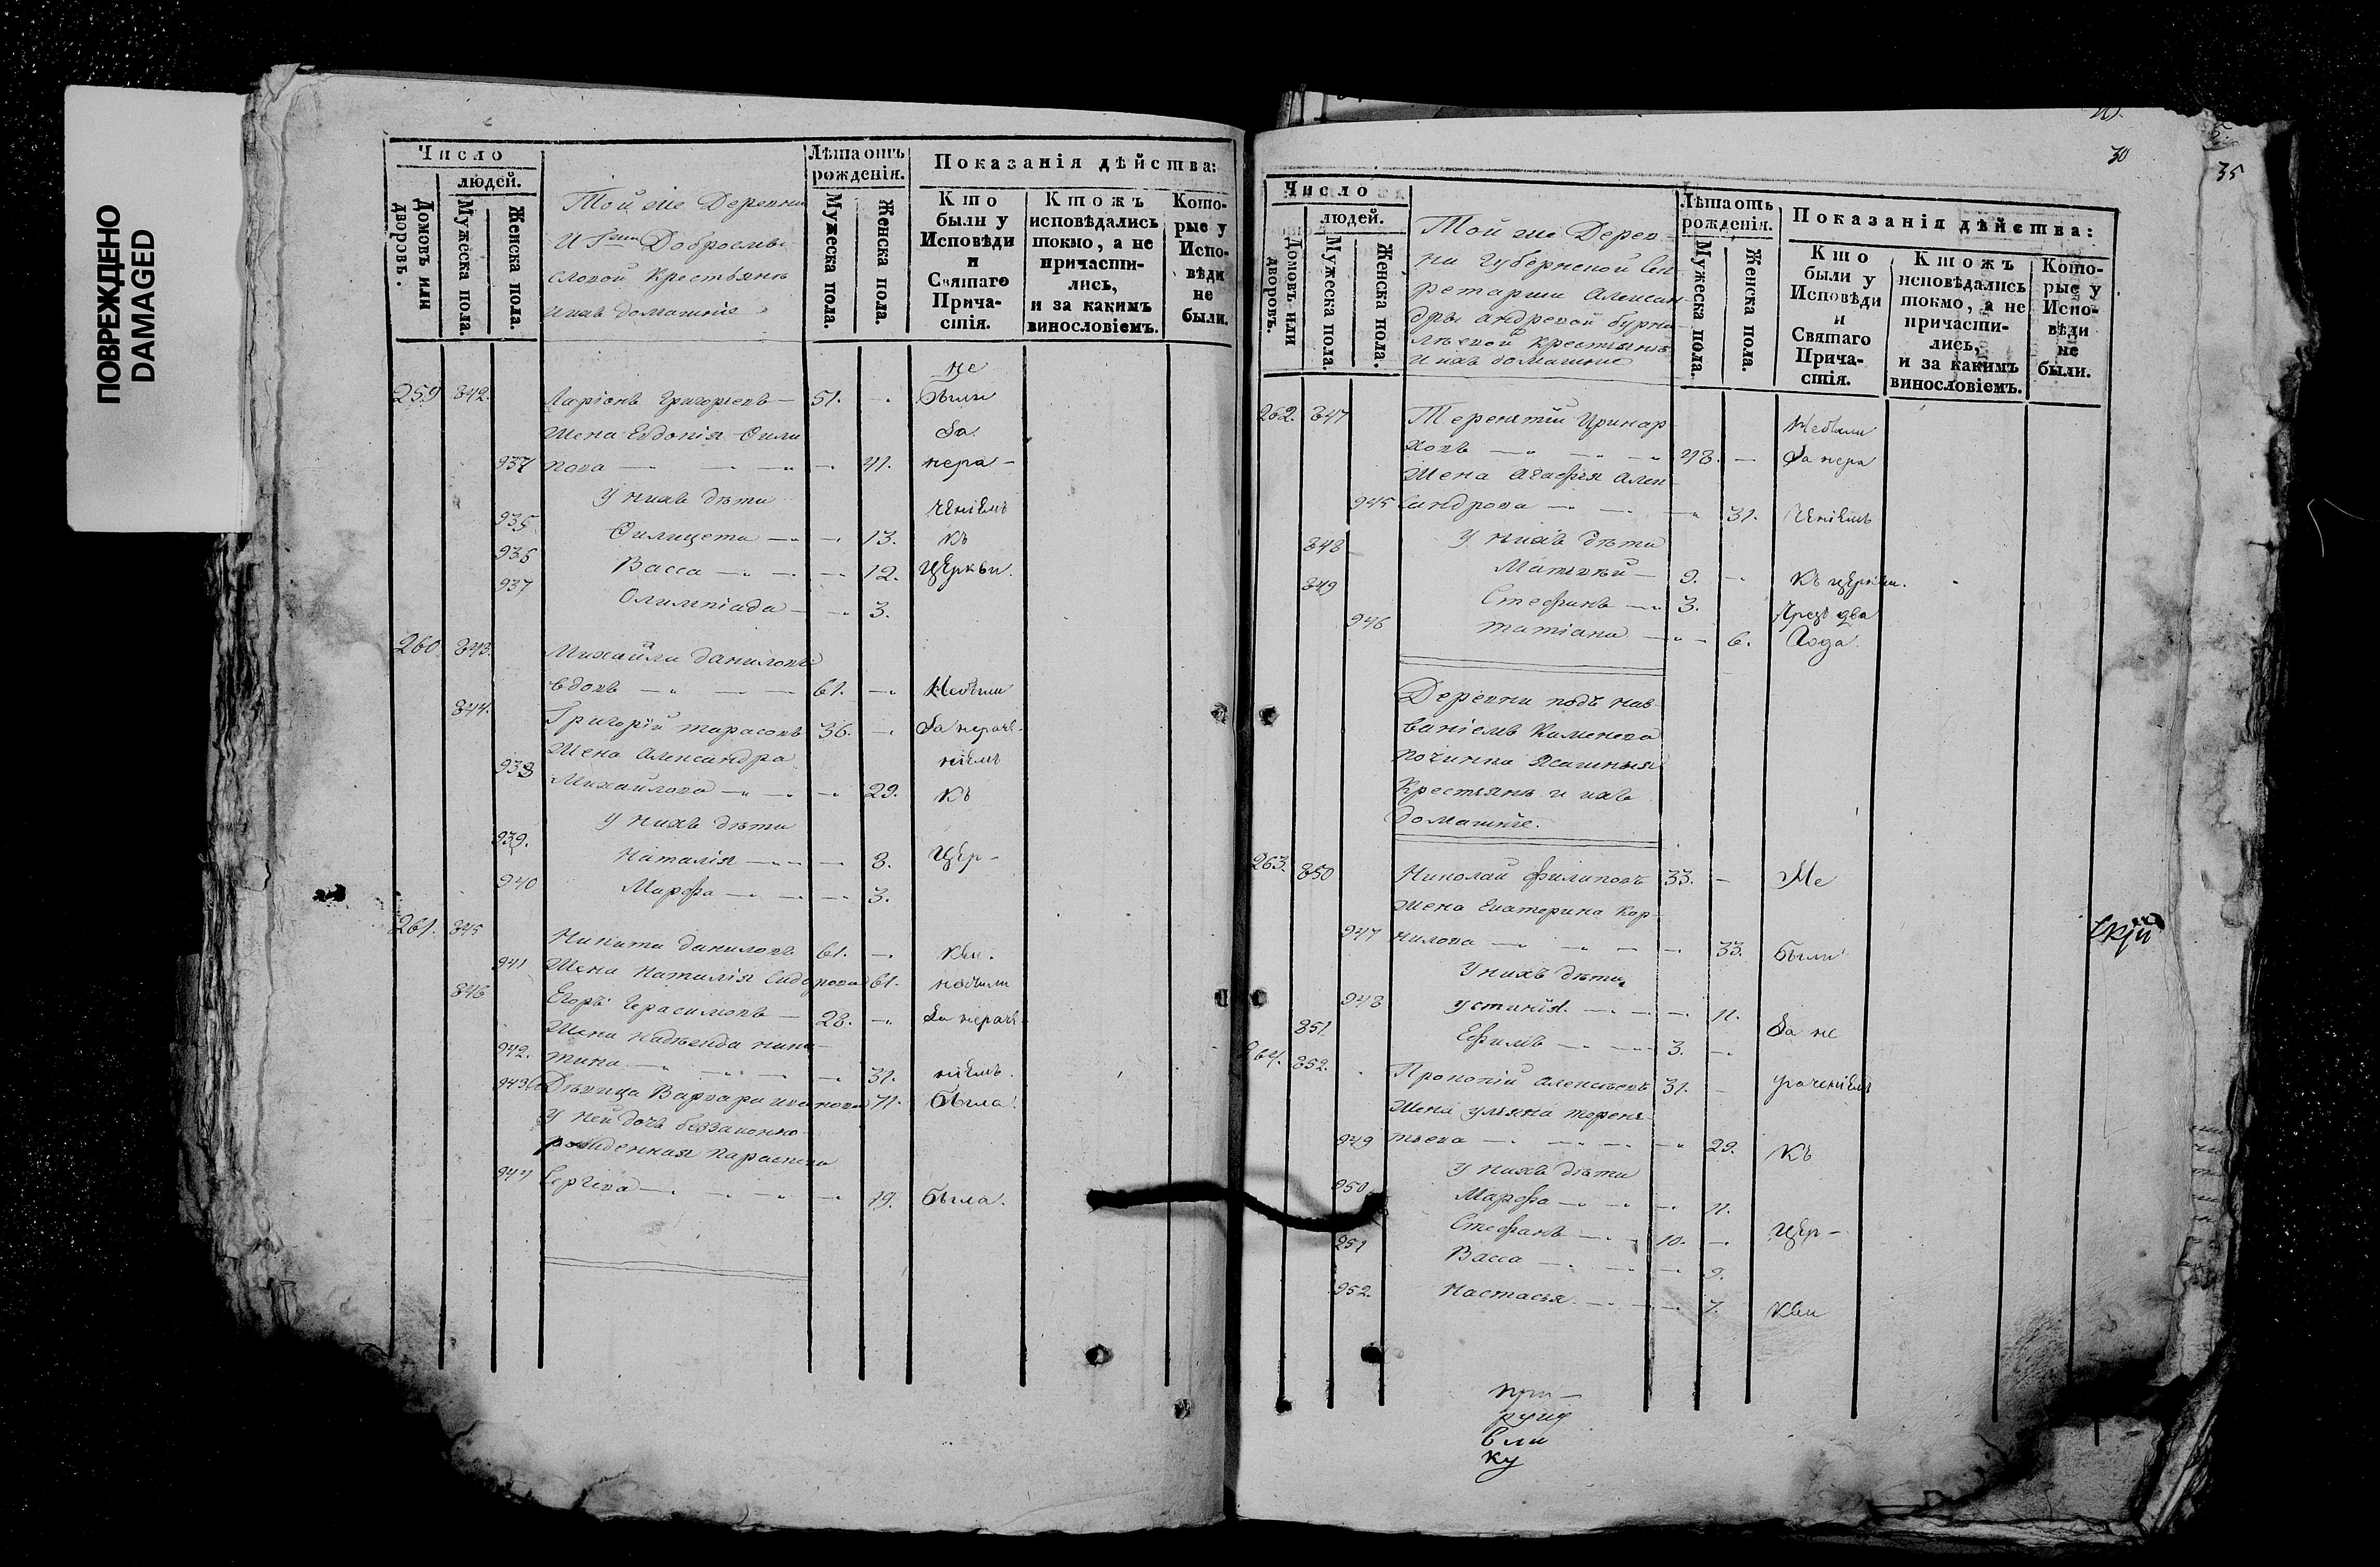 ПОВРЕЖДЕНО
DAMAGED
Число
людей.
Домовъ или дворовъ.
Мужеска пола.
Женска пола.
Той же Деревни
словой Крестьянъ
и ихъ домашніе
Лѣта отъ рожденія.
Мужеска пола.
Женска пола.
Показанія дѣйства:
Кто были у Исповѣди и Святаго Причастія.
Ктожъ исповѣдались токмо, а не причастились, и за какимъ винословіемъ.
Которые у Исповѣди не были.
не
259 842. Ларіонъ Григорьевъ — 51. —. были
Жена Евдокія Фили за
пова — — — 41. нера-
У нихъ дѣти ченіемъ
935 Филицета — — 13. къ
936 Васса — — — 12. Церкви.
937 Олимпіада — — 3.
260. 843. Михайла Даниловъ
вдовъ — — — 61. — Небыли
844. Григорій Тарасовъ 36. — За нераче-
Жена Александра ніемъ
938 Михайлова — — — 29. къ
У нихъ дѣти
939. Наталія — — 8. Цер-
940 Марфа — — — 3.
261. 845 Никита Даниловъ 61. — кви.
941 Жена Наталія Сидорова 61. небыли
846 Егоръ Герасимовъ — 28. — За нераче-
Жена Надежда Ники-
942. тина — — — 31. ніемъ.
943 Дѣвица Варвара Иванова 41. была.
У ней дочь беззаконно-
рожденная Параскева
944 Сергѣева — — — 19. была.
30
35
Число
людей.
Домовъ или дворовъ.
Мужеска пола.
Женска пола.
Той же Дерев-
ни Губернской Сек-
ретарши Алексан-
дры Андревой Бурна-
шевой Крестьянъ
и ихъ домашніе
Лѣта отъ рожденія.
Мужеска пола.
Женска пола.
Показанія дѣйства:
Кто были у Исповѣди и Святаго Причастія.
Ктожъ исповѣдались токмо, а не причастились, и за какимъ винословіемъ.
Которые у Исповѣди не были.
262. 847 Терентій Иринар- Небыли
ховъ — — — 48. — За нера
Жена Агафія Алек-
945 сандрова — — — 31. ченіемъ
У нихъ дѣти
848 Матвѣй — 9. — къ церкви.
849 Стефанъ — 3. Чрезъ два
946 Татіана — — 6. Года.
Деревни подъ наз-
ваніемъ Каменева
Починка Ясашныя
Крестьянъ и ихъ
домашніе.
263. 850 Николай Филиповъ 33. — Не
Жена Екатерина Кор-
947 нилова — — — 33. были
У нихъ дѣти
948 Устинія — — — 11. За не
851. Ефимъ — — 3. —
264. 852. Прокопій Алексѣевъ 31. — раченіемъ
Жена Ульяна Терень-
949 тьева — — — 29. къ
У нихъ дѣти
950. Марфа — — — 11.
Стефанъ — — 10. — цер-
951 Васса — — — 9.
952. Настасья — — — 7. кви
при-